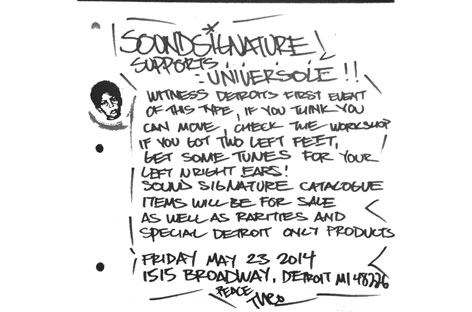 SOUNDSIGNATURE
SUPPORTS
UNIVERSOLE!!
WITNESS DETROITS FIRST EVENT
OF THIS TYPE, IF YOU THINK YOU
CAN MOVE, CHECK THE WORKSHOP
IF YOU GOT TWO LEFT FEET,
GET SOME TUNES FOR YOUR
LEFT N RIGHT EARS!
SOUND SIGNATURE CATALOGUE
ITEMS WILL BE FOR SALE
AS WELL AS RARITIES AND
SPECIAL DETROIT ONLY PRODUCTS
FRIDAY MAY 23 2014
1515 BROADWAY, DETROIT MI 48226
PEACE